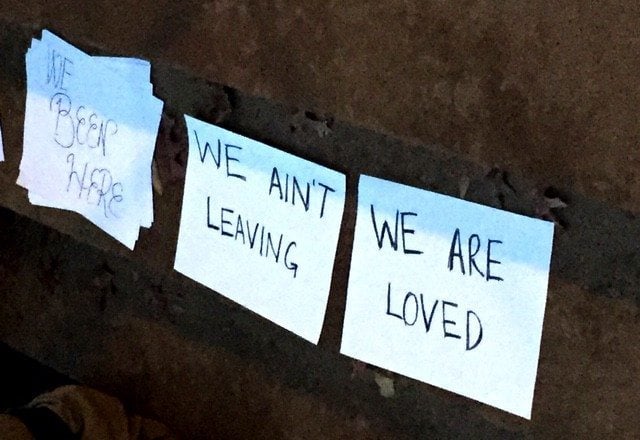 WE
BEEN
HERE
WE AIN'T
LEAVING
WE ARE
LOVED